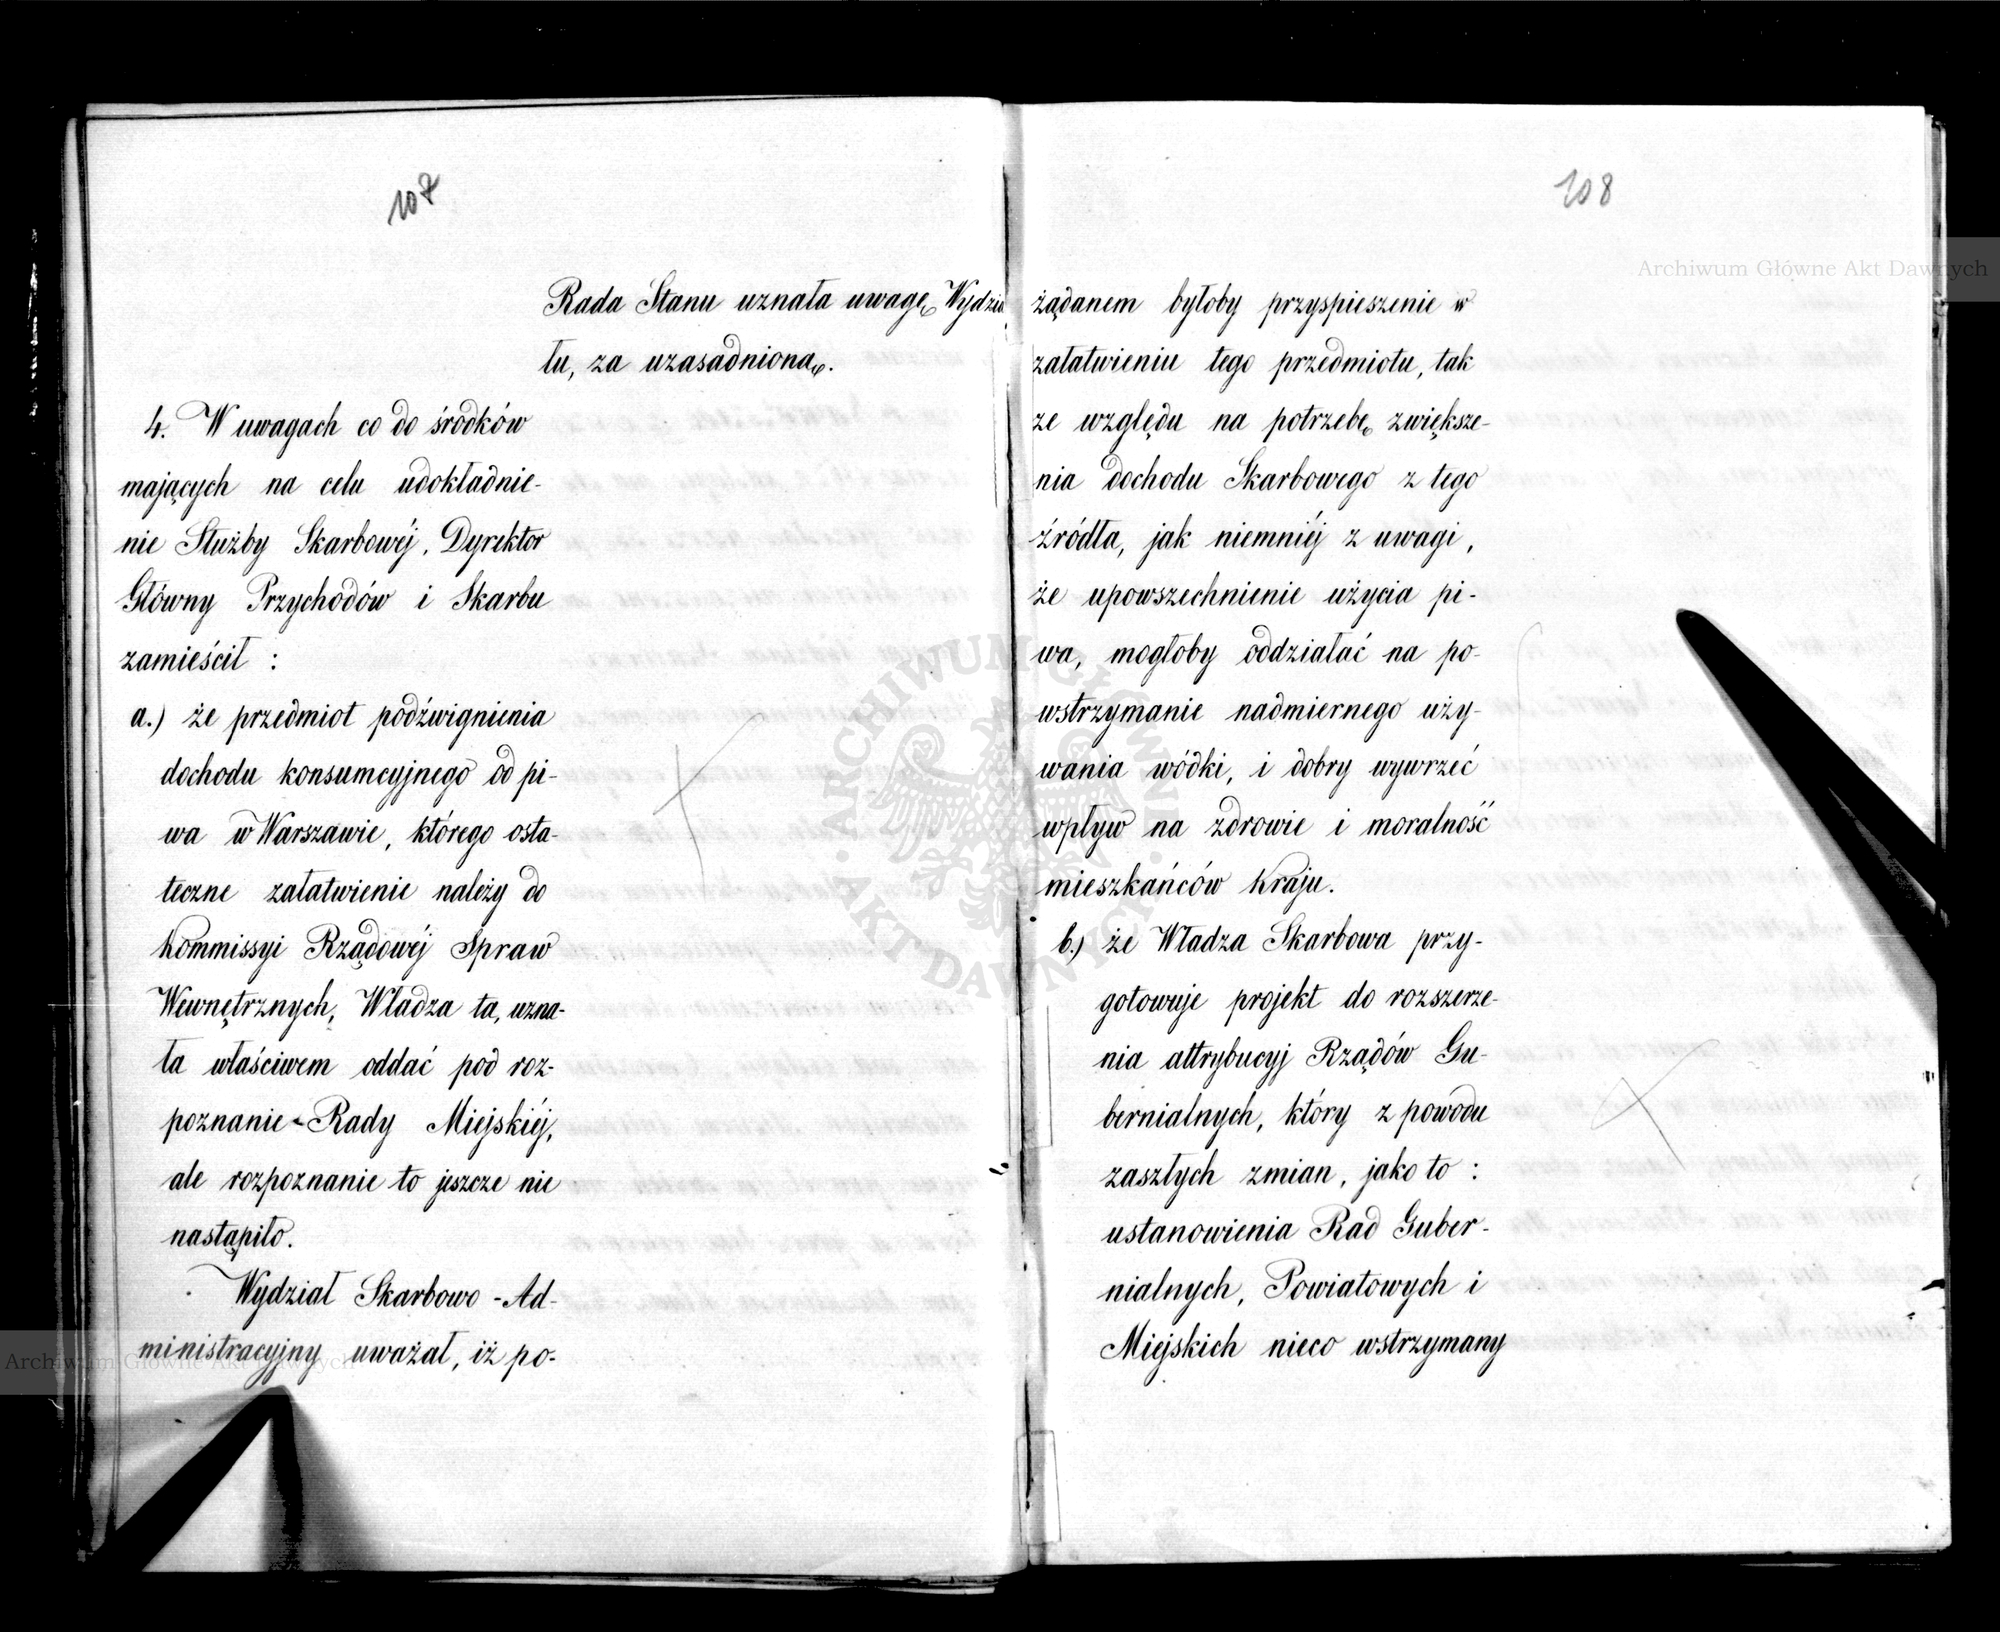 107
Rada Stanu uznała uwagę Wydzia
łu, za uzasadnioną.
4. W uwagach co do środków
mających na celu udokładnie-
nie Służby Skarbowéj, Dyrektor
Główny Przychodów i Skarbu
zamieścił :
a.) że przedmiot podźwignienia
dochodu konsumcyjnego od pi-
wa w Warszawie, którego osta-
teczne załatwienie należy do
Kommissyi Rządowéj Spraw
Wewnętrznych, Władza ta, uzna-
ła właściwem oddać pod roz-
poznanie Rady Miejskiéj,
ale rozpoznanie to jeszcze nie
nastąpiło.
Wydział Skarbowo-Ad-
ministracyjny uważał, iż po-
108
żądanem byłoby przyspieszenie w
załatwieniu tego przedmiotu, tak
ze względu na potrzebę zwiększe-
nia dochodu Skarbowego z tego
źródła, jak niemniéj z uwagi,
że upowszechnienie użycia pi-
wa, mogłoby oddziałać na po-
wstrzymanie nadmiernego uży-
wania wódki, i dobry wywrzeć
wpływ na zdrowie i moralność
mieszkańców Kraju.
b.) że Władza Skarbowa przy-
gotowuje projekt do rozszerze-
nia attrybucyj Rządów Gu-
bernialnych, który z powodu
zaszłych zmian, jako to :
ustanowienia Rad Guber-
nialnych, Powiatowych i
Miejskich nieco wstrzymany
Archiwum Główne Akt Dawnych
Archiwum Główne Akt Dawnych
ARCHIWUM GŁÓWNE
AKT DAWNYCH